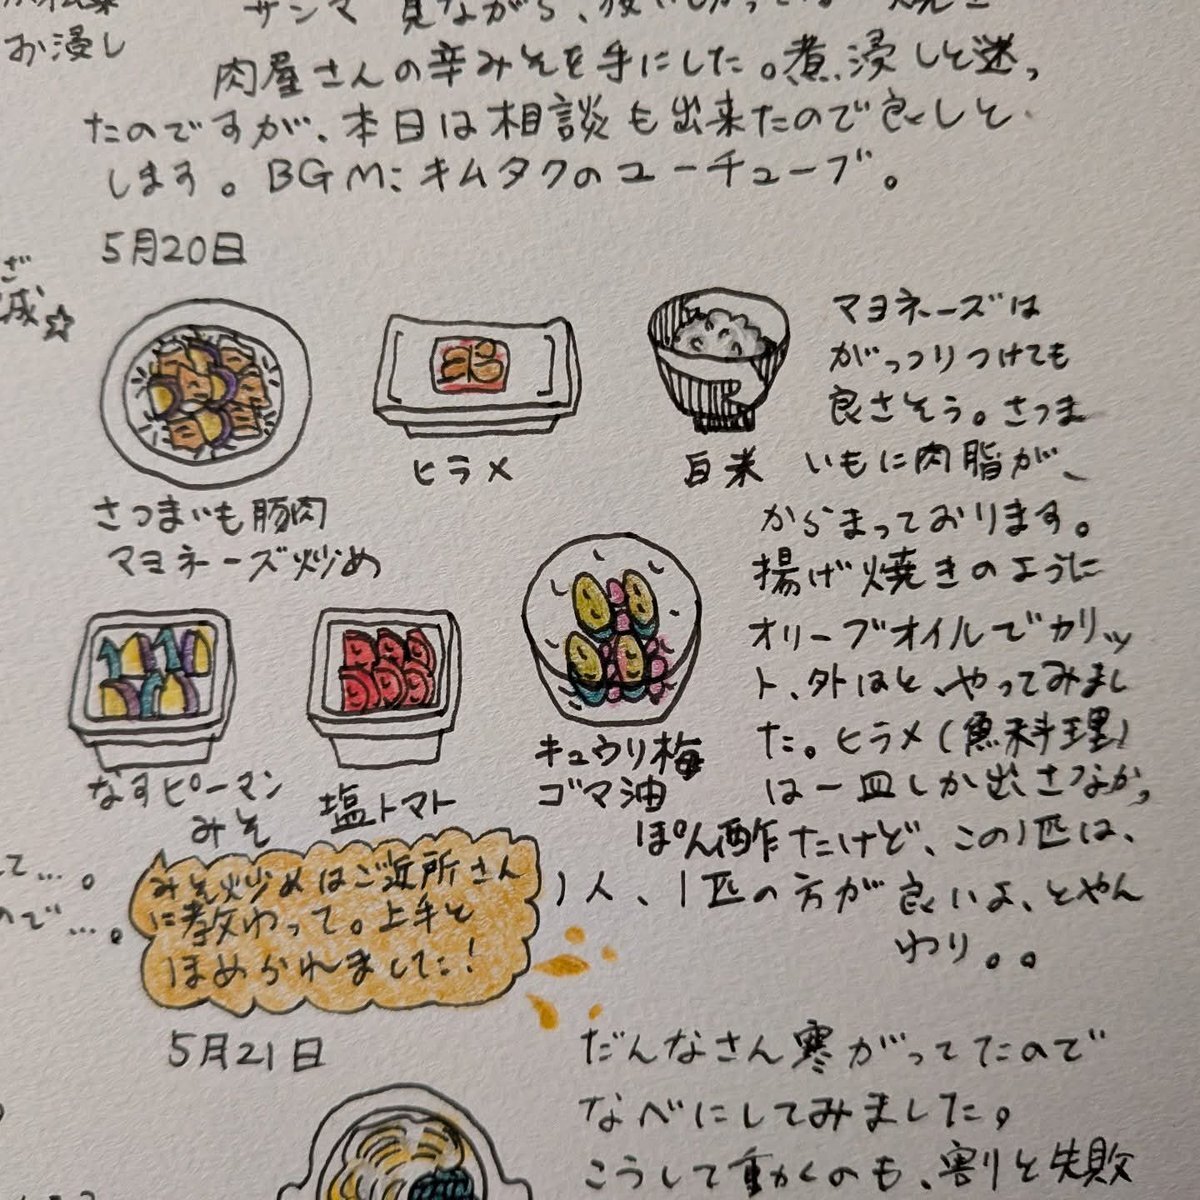 お浸し
サンマ 見ながら、
肉屋さんの辛みそを手にした。煮浸しと迷っ
たのですが、本日は相談も出来たので良しと
します。BGM:キムタクのユーチューブ。
5月20日
さつまいも豚肉
マヨネーズ炒め
ヒラメ
白米
マヨネーズは
がっつりつけても
良さそう。さつま
いもに肉脂が、
からまっております。
揚げ焼きのように
オリーブオイルでカリッ
ト、外はと、やってみまし
た。ヒラメ(魚料理)
は一皿しか出さなか、
ぽん酢たけど、この1匹は、
1人、1匹の方が良いよ、とやん
わり。。
なすピーマン
みそ
塩トマト
キュウリ梅
ゴマ油
みそ炒めはご近所さん
に教わって。上手と
ほめられました!
て...。
ので...。
5月21日
だんなさん寒がってたので
なべにしてみました。
こうして重かくのも、割と失敗